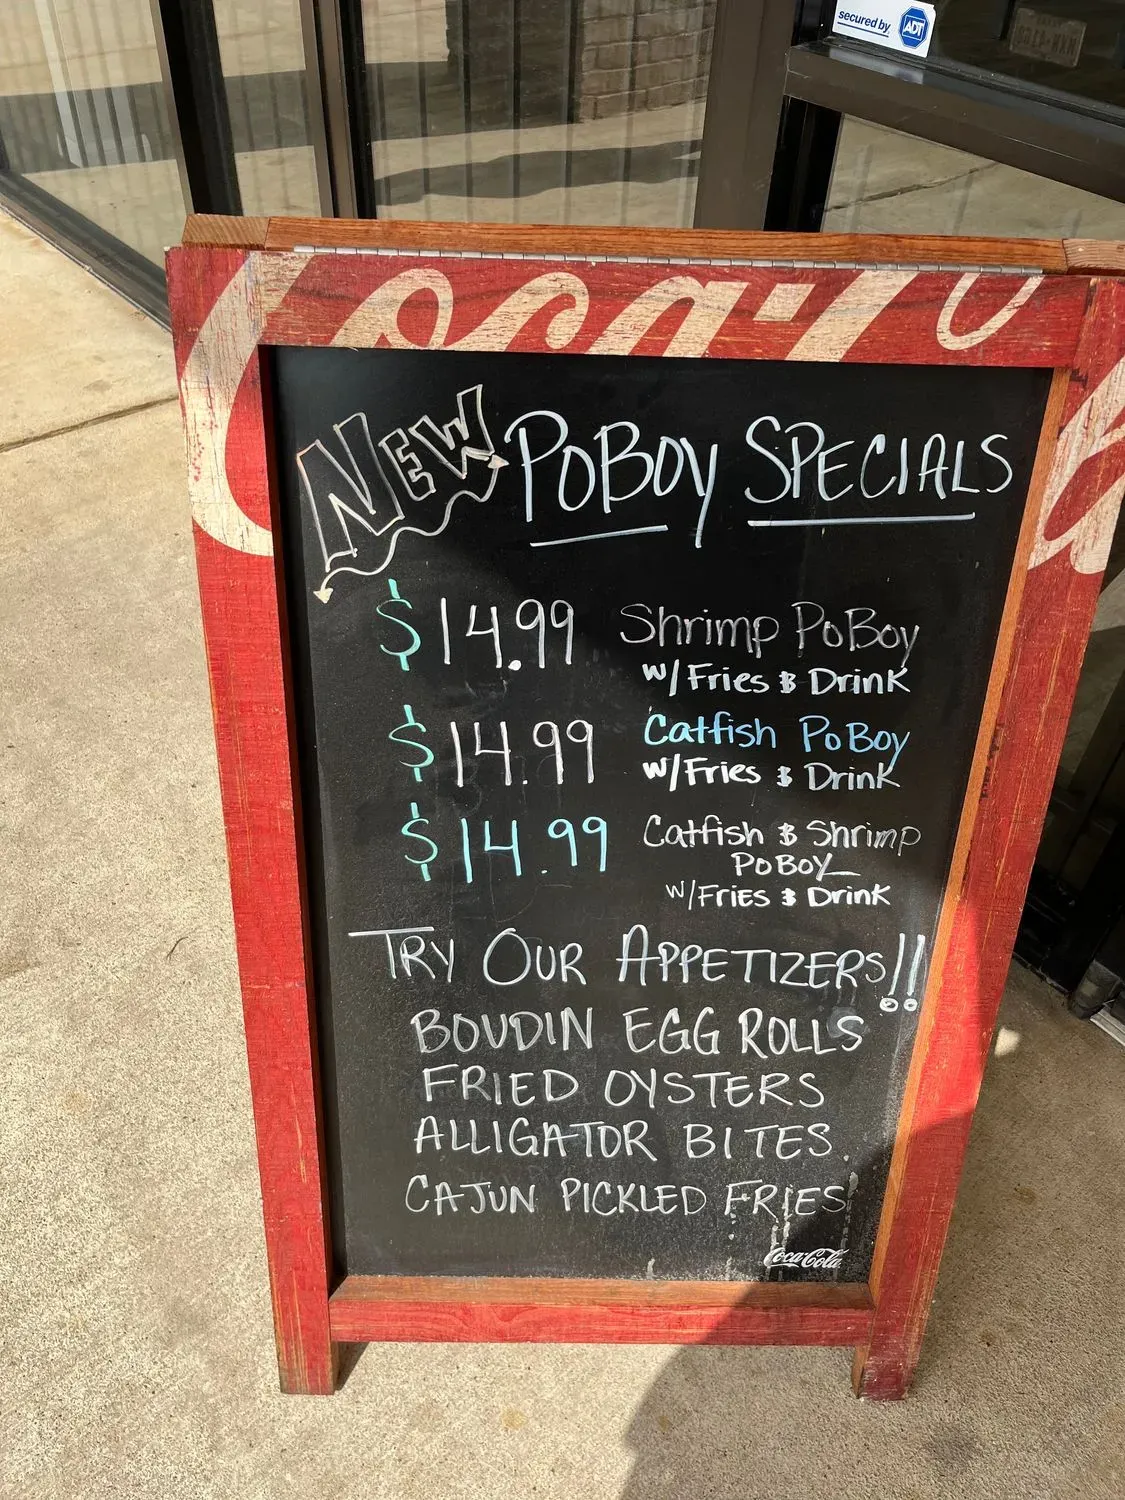 secured by ADT
Coca-Co
NEW POBOY SPECIALS
$14.99 Shrimp PoBoy
w/Fries & Drink
$14.99 Catfish PoBoy
w/Fries & Drink
$14.99 Catfish & Shrimp
POBOY
w/FRIES & Drink
TRY OUR APPETIZERS!!
BOUDIN EGG ROLLS
FRIED OYSTERS
ALLIGATOR BITES
CAJUN PICKLED FRIES
Coca-Cola